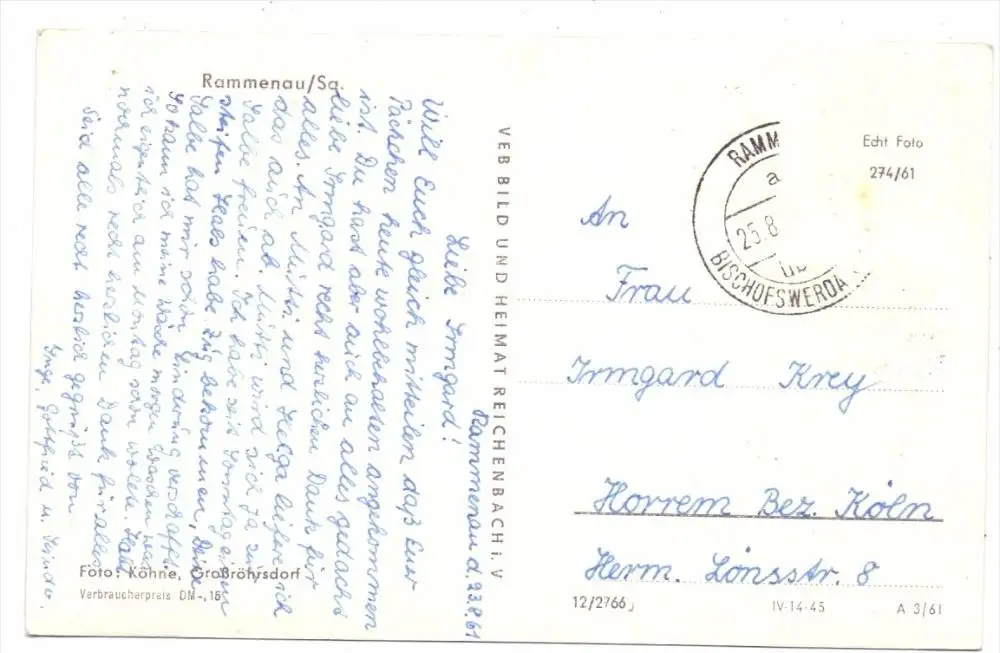 Rammenau/Sa.
Rammenau d. 23.8.61
Liebe Irmgard!
Will Euch gleich mitteilen daß Euer
Päckchen heute wohlbehalten angekommen
ist. Du hast aber auch an alles gedacht
liebe Irmgard recht herzlichen Dank für
alles. An Mutti und Helga liefere ich
das auch ab. Mutti wird sich ja zur
Salbe freuen. Ich habe seit Sonntag einen
steifen Hals habe Zug bekommen, Deine
Salbe hat mir schon Linderung verschafft.
So kann ich meine Wäsche morgen waschen was
ich eigentlich am Montag schon wollte.
nochmals recht herzlichen Dank für alles
Seid alle recht herzlich gegrüßt von
Inge, Gottfried u.
Foto: Köhne, Großröhrsdorf
Verbraucherpreis DM -,15
VEB BILD UND HEIMAT REICHENBACH i. V
RAMM
a
25.8
üb
BISCHOFSWERDA
Echt Foto
274/61
An
Frau
Irmgard Krey
Horrem Bez. Köln
Herm. Lönsstr. 8
12/2766
IV-14-45
A 3/61